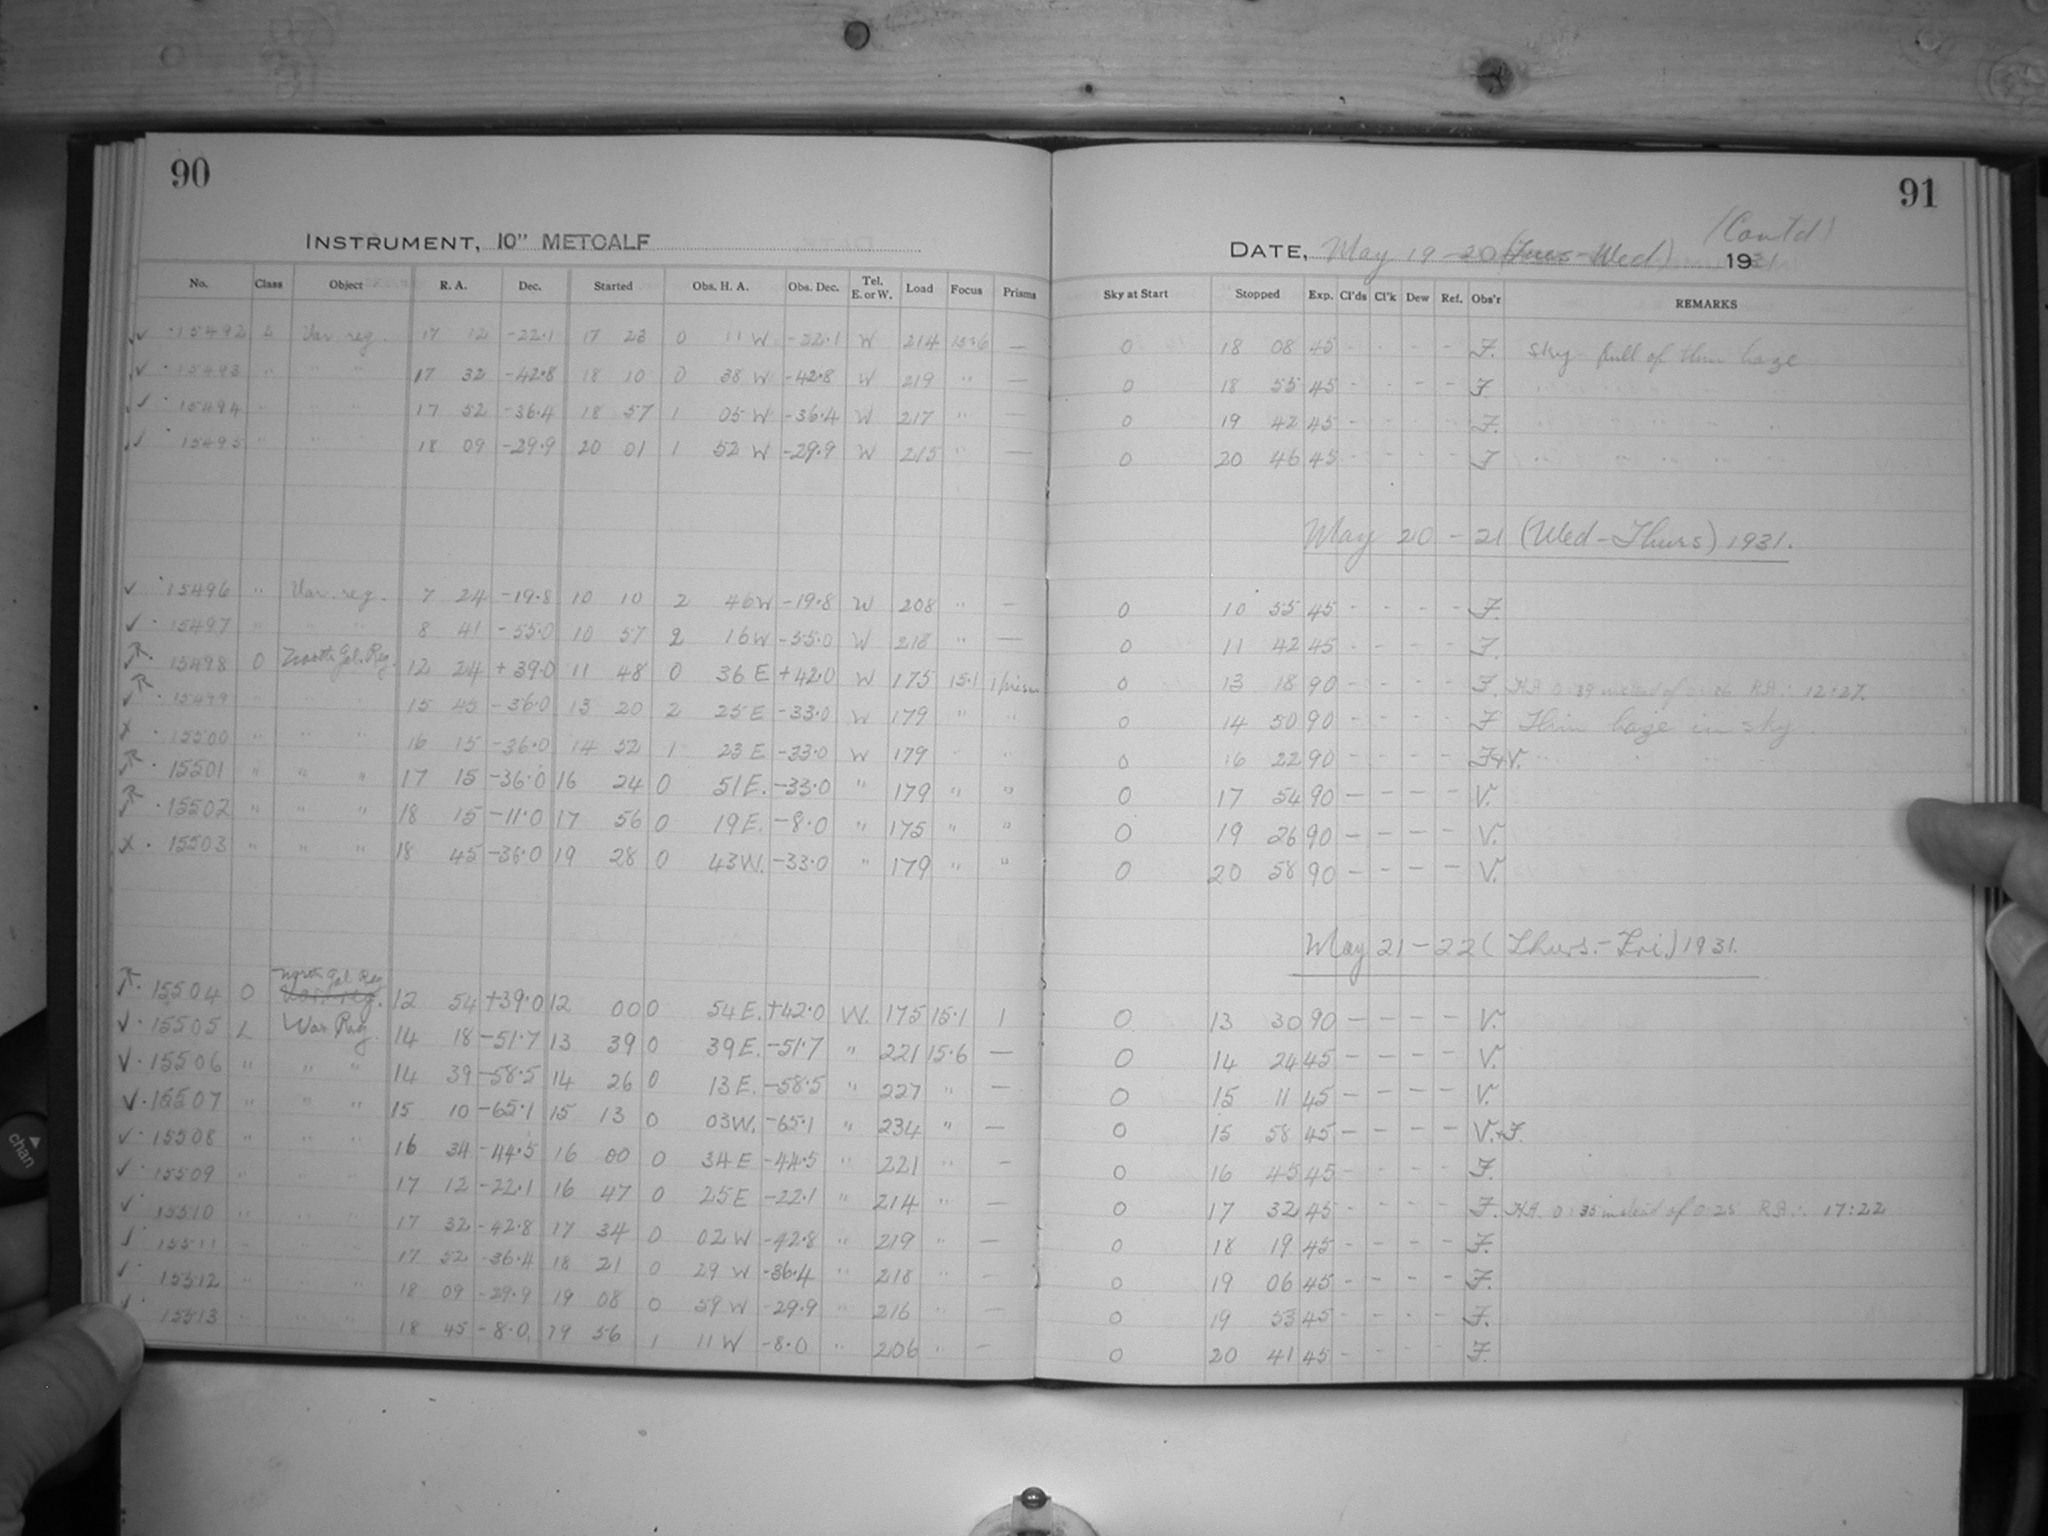 90
INSTRUMENT, 10" METCALF
No. Class Object R. A. Dec. Started Obs. H. A. Obs. Dec. Tel. E. or W. Load Focus Prisms
✓ · 15492 L Var reg. 17 12 -22.1 17 23 0 11 W -22.1 W 214 15.6 —
✓ · 15493 " " " 17 32 -42.8 18 10 0 38 W -42.8 W 219 " —
✓ · 15494 " " " 17 52 -36.4 18 57 1 05 W -36.4 W 217 " —
✓ · 15495 " " " 18 09 -29.9 20 01 1 52 W -29.9 W 215 " —
✓ · 15496 " Var. reg. 7 24 -19.8 10 10 2 46 W -19.8 W 208 " —
✓ · 15497 " " " 8 41 -55.0 10 57 2 16 W -55.0 W 218 " —
15498 O North Gal. Reg. 12 24 +39.0 11 48 0 36 E +42.0 W 175 15.1 1 prism
15499 " " 15 45 -36.0 13 20 2 25 E -33.0 W 179 " "
x · 15500 " " " 16 15 -36.0 14 52 1 23 E -33.0 W 179 " "
15501 " " " 17 15 -36.0 16 24 0 51 E. -33.0 " 179 " "
15502 " " " 18 15 -11.0 17 56 0 19 E. -8.0 " 175 " "
x · 15503 " " " 18 45 -36.0 19 28 0 43 W. -33.0 " 179 " "
North Gal. Reg
15504 O Var. reg. 12 54 +39.0 12 00 0 54 E. +42.0 W. 175 15.1 1
✓ · 15505 L Var Reg. 14 18 -51.7 13 39 0 39 E. -51.7 " 221 15.6 —
✓ · 15506 " " " 14 39 -58.5 14 26 0 13 E. -58.5 " 227 " —
✓ · 15507 " " " 15 10 -65.1 15 13 0 03 W. -65.1 " 234 " —
✓ · 15508 " " " 16 34 -44.5 16 00 0 34 E -44.5 " 221 " —
✓ · 15509 " " " 17 12 -22.1 16 47 0 25 E -22.1 " 214 " —
✓ · 15510 " " " 17 32 -42.8 17 34 0 02 W -42.8 " 219 " —
✓ · 15511 " " " 17 52 -36.4 18 21 0 29 W -36.4 " 218 " —
✓ · 15512 " " " 18 09 -29.9 19 08 0 59 W -29.9 " 216 " —
✓ · 15513 " " " 18 45 -8.0 19 56 1 11 W -8.0 " 206 " —
91
(Cont'd)
DATE, May 19-20 (Tues-Wed) 1931
Sky at Start Stopped Exp. Cl'ds Cl'k Dew Ref. Obs'r REMARKS
0 18 08 45 - - - - F. Sky full of thin haze
0 18 55 45 - - - - F
0 19 42 45 - - - - F. " " " " "
0 20 46 45 - - - - F " " " " "
May 20 - 21 (Wed - Thurs) 1931.
0 10 55 45 - - - - F.
0 11 42 45 - - - - F.
0 13 18 90 - - - - F. HA 0:39 instead of 0:36 RA ∴ 12:27.
0 14 50 90 - - - - F Thin haze in sky
0 16 22 90 - - - - F+V. " " " "
0 17 54 90 - - - - V.
0 19 26 90 - - - - V.
0 20 58 90 - - - - V.
May 21 - 22 (Thurs. - Fri.) 1931.
0 13 30 90 - - - - V.
0 14 24 45 - - - - V.
0 15 11 45 - - - - V.
0 15 58 45 - - - - V.+F.
0 16 45 45 - - - - F.
0 17 32 45 - - - - F. HA. 0:35 instead of 0:25 RA ∴ 17:22
0 18 19 45 - - - - F.
0 19 06 45 - - - - F.
0 19 53 45 - - - - F.
0 20 41 45 - - - - F.
chan